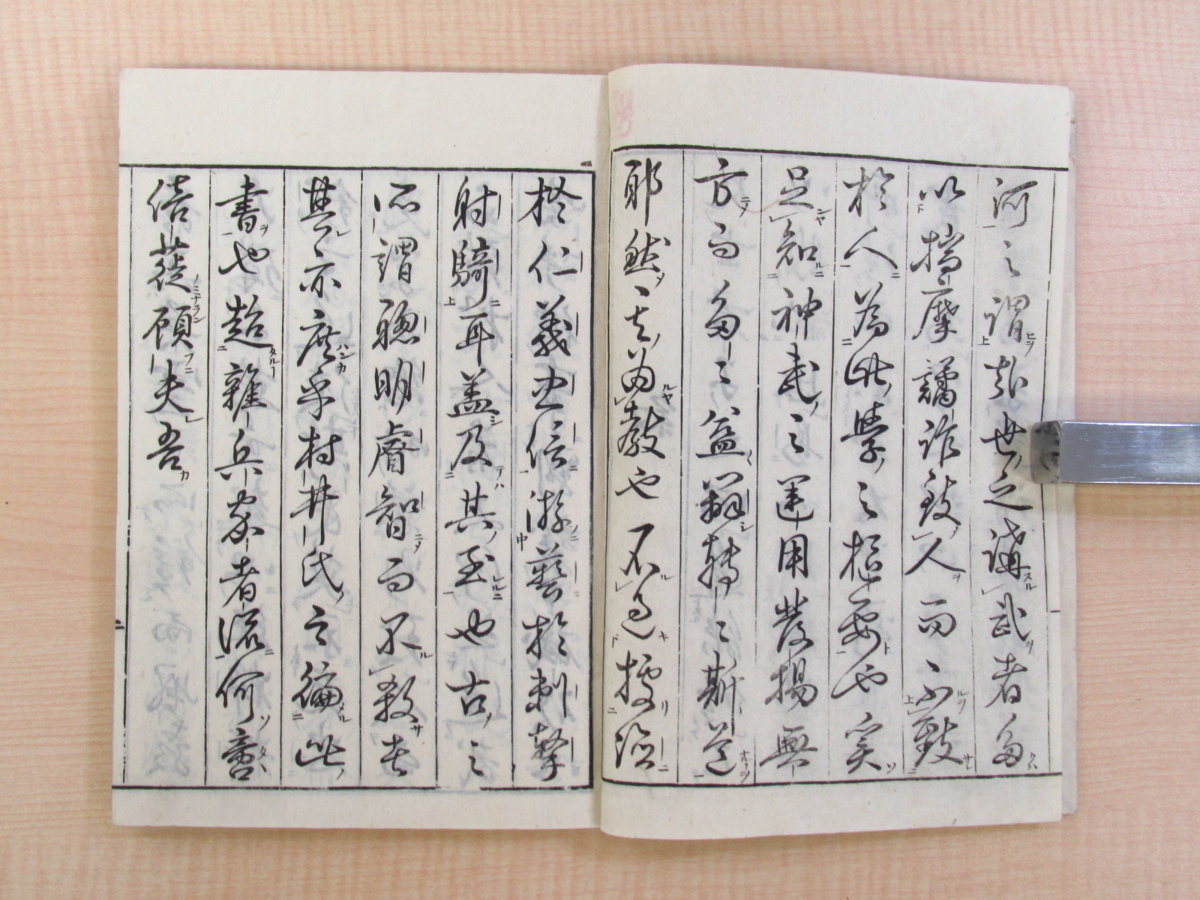 河之謂哉世之講武者多
以揣摩譎詐致人而不致
於人為此學之樞要也寔
足知神武之運用發揚無
方而多々益辨轉々斯道
耶然其為教也不過據德
於仁義忠信游藝於刺擊
射騎耳蓋及其至也古之
所謂聰明睿智而不殺者
其亦庶乎村井氏之編此
書也超雜兵家者流何啻
倍蓰顧夫吾